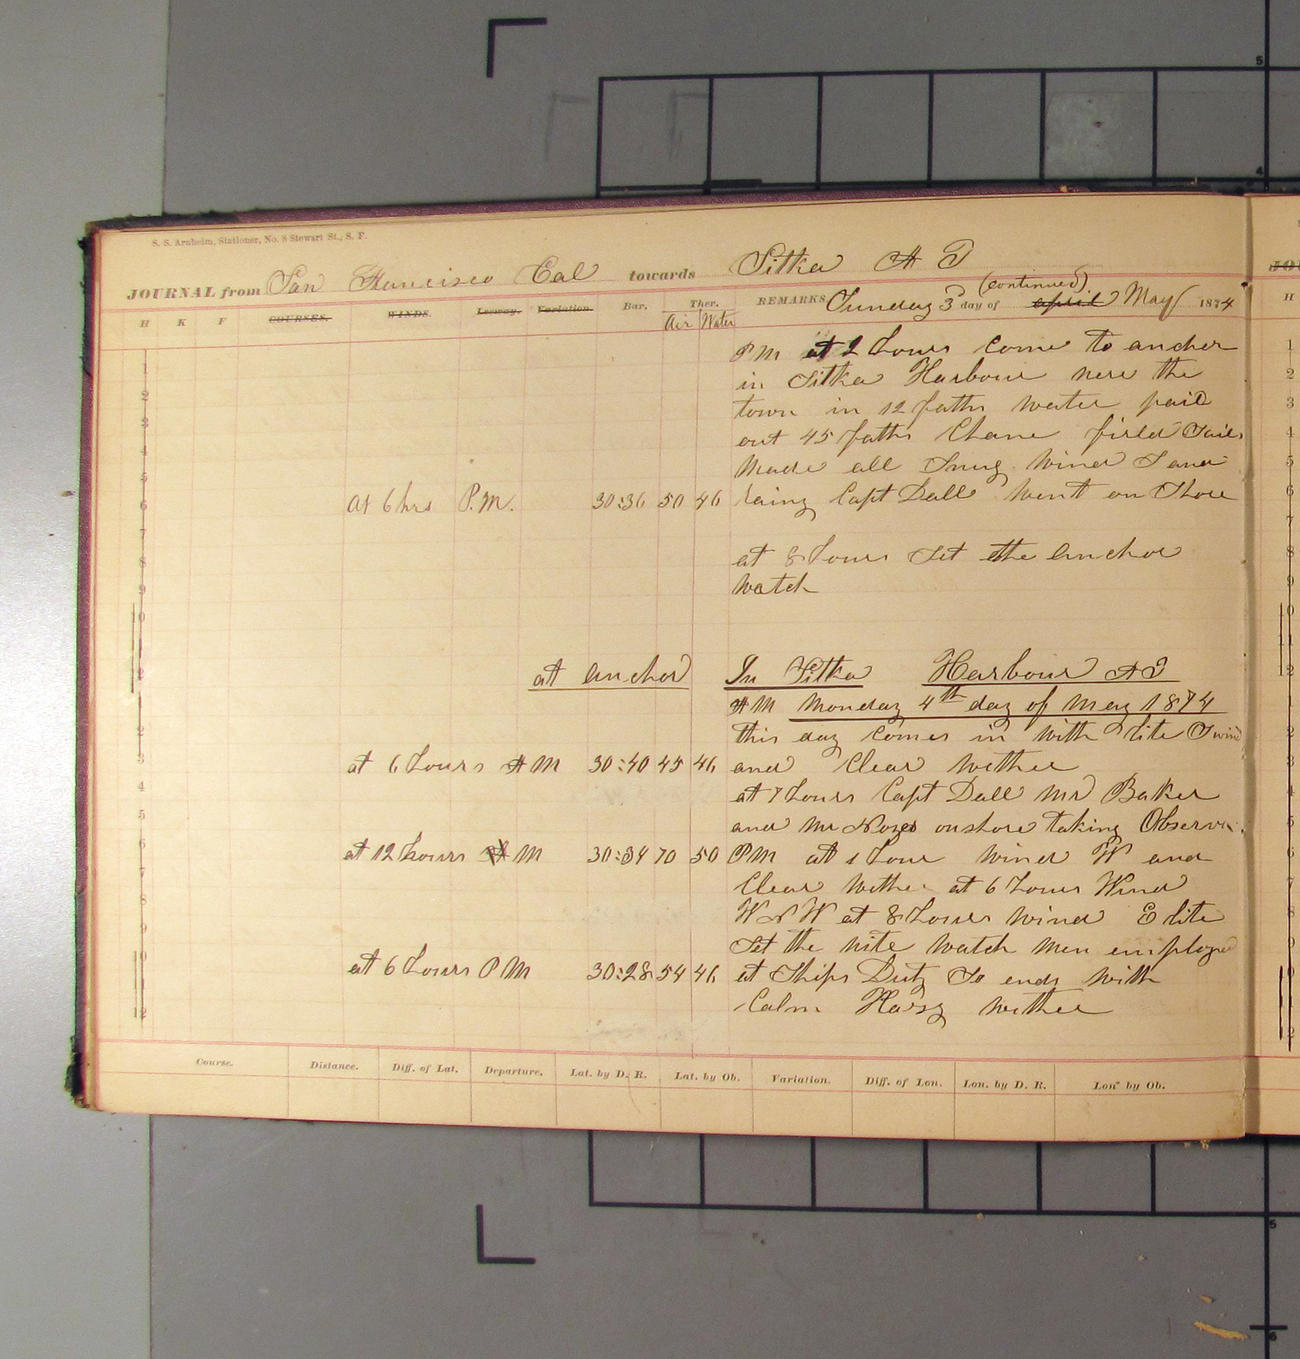 S. S. Arnheim, Stationer, No. 8 Stewart St., S. F.
JOURNAL from San Francisco Cal towards Sitka A T
H K F COURSES. WINDS. Leeway. Variation. Bar. Ther. REMARKS Sunday 3 day of april May (continued) 1874
Air Water
PM at 2 hours come to ancher
in Sitka Harbour nere the
town in 12 faths water paid
out 45 faths Chane firld Sails
made all Snug wind S and
at 6 hrs P.M. 30:36 50 46 raing Capt Dall went on Shore
at 8 hours Set the anchor
watch
at anchor In Sitka Harbour A T
AM Monday 4th day of May 1874
this day comes in with lite S wind
at 6 hours AM 30:40 45 46 and Clear wether
at 7 hours Capt Dall Mr Baker
and Mr Noyes onshore taking Observ
at 12 hours M 30:34 70 50 PM at 1 hour wind W and
Clear wether at 6 hours Wind
W N W at 8 hours wind E lite
Set the nite watch men employed
at 6 hours PM 30:28 54 46 at Ships Duty So ends with
Calm Hasy wether
Course. Distance. Diff. of Lat. Departure. Lat. by D. R. Lat. by Ob. Variation. Diff. of Lon. Lon. by D. R. Lon. by Ob.
1
2
3
4
5
6
7
8
9
10
11
12
1
2
3
4
5
6
7
8
9
10
11
12